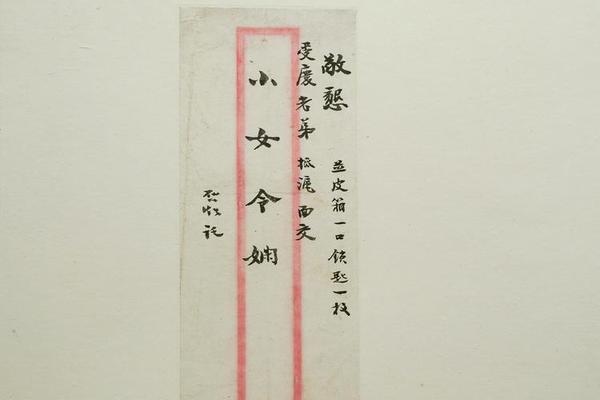 敬懇
並皮箱一口鎖匙一枚
受慶老弟 抵滬面交
小女令嫻
敬託